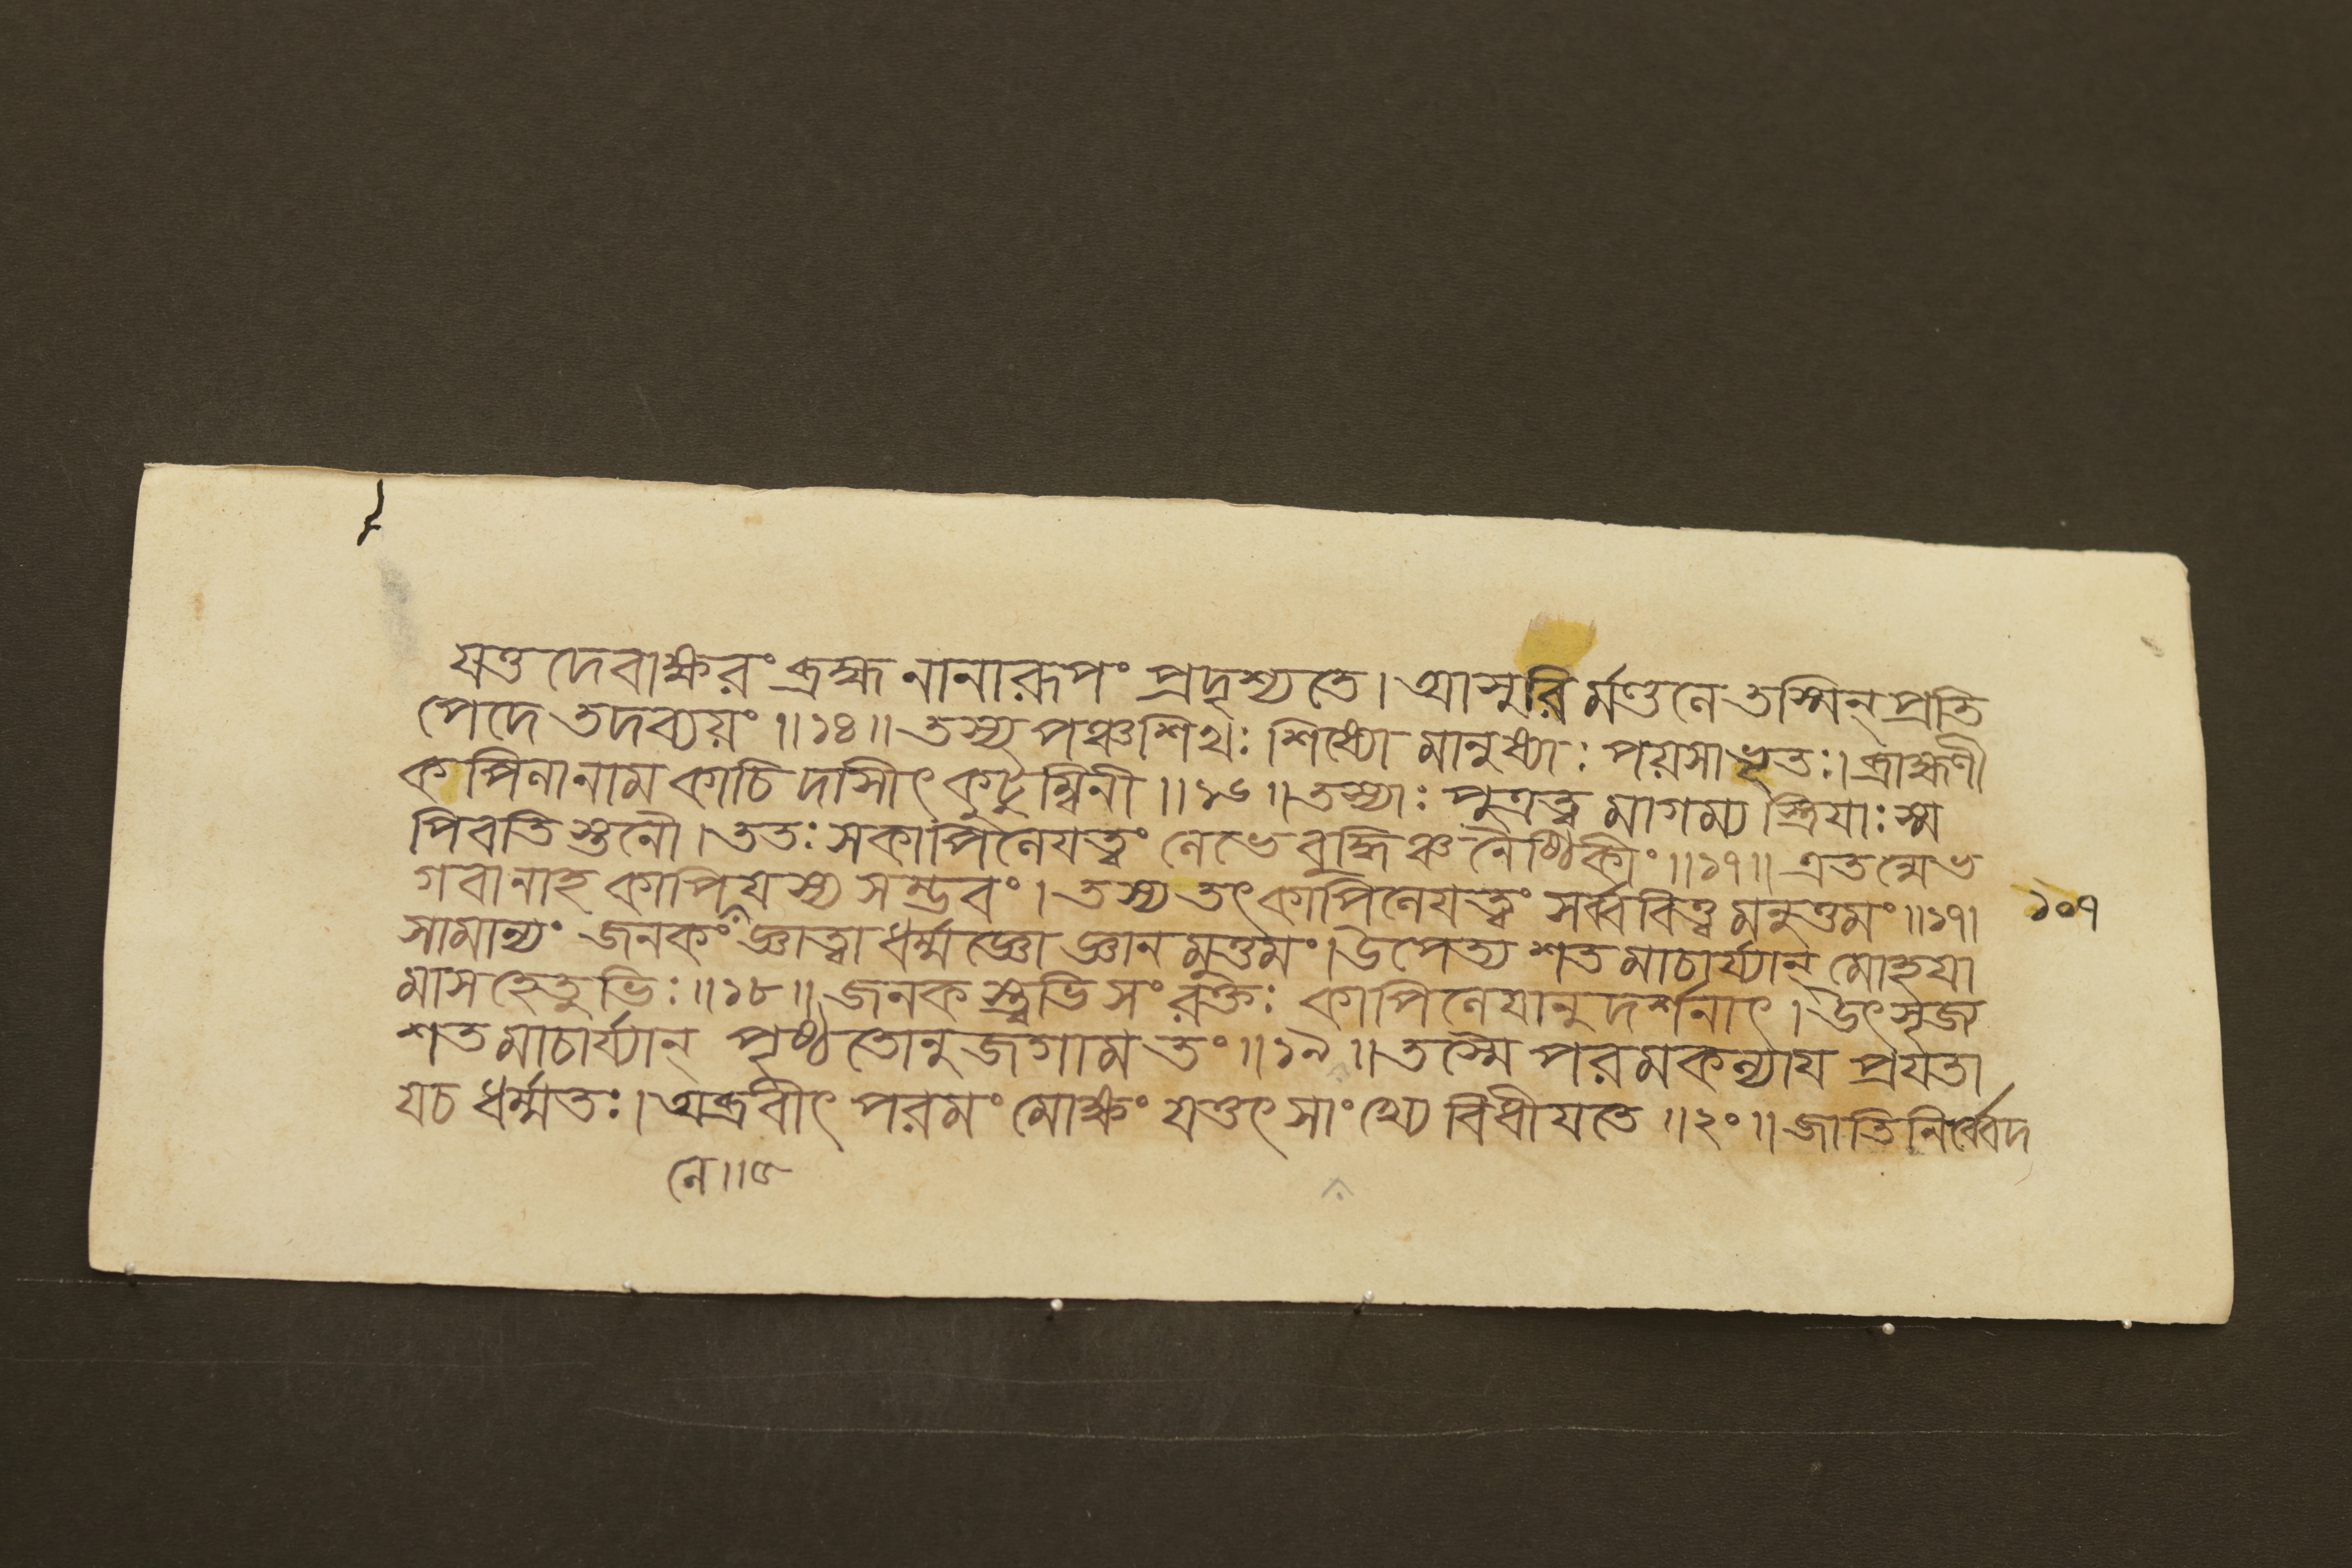 যত্তদেবাক্ষরং ব্রহ্ম নানারূপং প্রদৃশ্যতে। আসুরির্মণ্ডলে তস্মিন্ প্রতি
পেদে তদব্যয়ং॥১৪॥ তস্য পঞ্চশিখঃ শিষ্যো মানুষ্যাঃ পয়সা ভৃতঃ। ব্রাহ্মণী
কপিলা নাম কাচিদাসীৎ কুটুম্বিনী॥১৬॥ তস্যাঃ পুত্রত্বমাগম্য স্ত্রিযাঃ স্ম
পিবতি স্তনৌ। ততঃ স কাপিলেযত্বং লেভে বুদ্ধিঞ্চ নৈষ্ঠিকীং॥১৭॥ এতন্মে ভ
গবানাহ কাপিযস্য সম্ভবং। তস্য তৎ কাপিলেযত্বং সর্ব্ববিত্ত্বমনুত্তমং॥১৭।
সামান্যং জনকং জ্ঞাত্বা ধর্ম্মজ্ঞো জ্ঞানমুত্তমং। উপেত্য শতমাচার্য্যান্ মোহযা
১০৭
মাস হেতুভিঃ॥১৮॥ জনকস্ত্বভিসংরক্তঃ কাপিলেযানুদর্শনাৎ। উৎসৃজ
শতমাচার্য্যান্ পৃষ্ঠতোনুজগাম তং॥১৯॥ তস্মৈ পরমকল্যায প্রযতা
য চ ধর্ম্মতঃ। অব্রবীৎ পরমং মোক্ষং যত্তৎ সাংখ্যে বিধীযতে॥২০॥ জাতিনির্ব্বেদ
লে॥